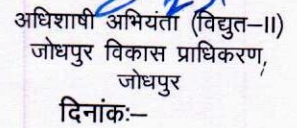 अधिशाषी अभियंता (विद्युत–II)
जोधपुर विकास प्राधिकरण,
जोधपुर
दिनांकः–